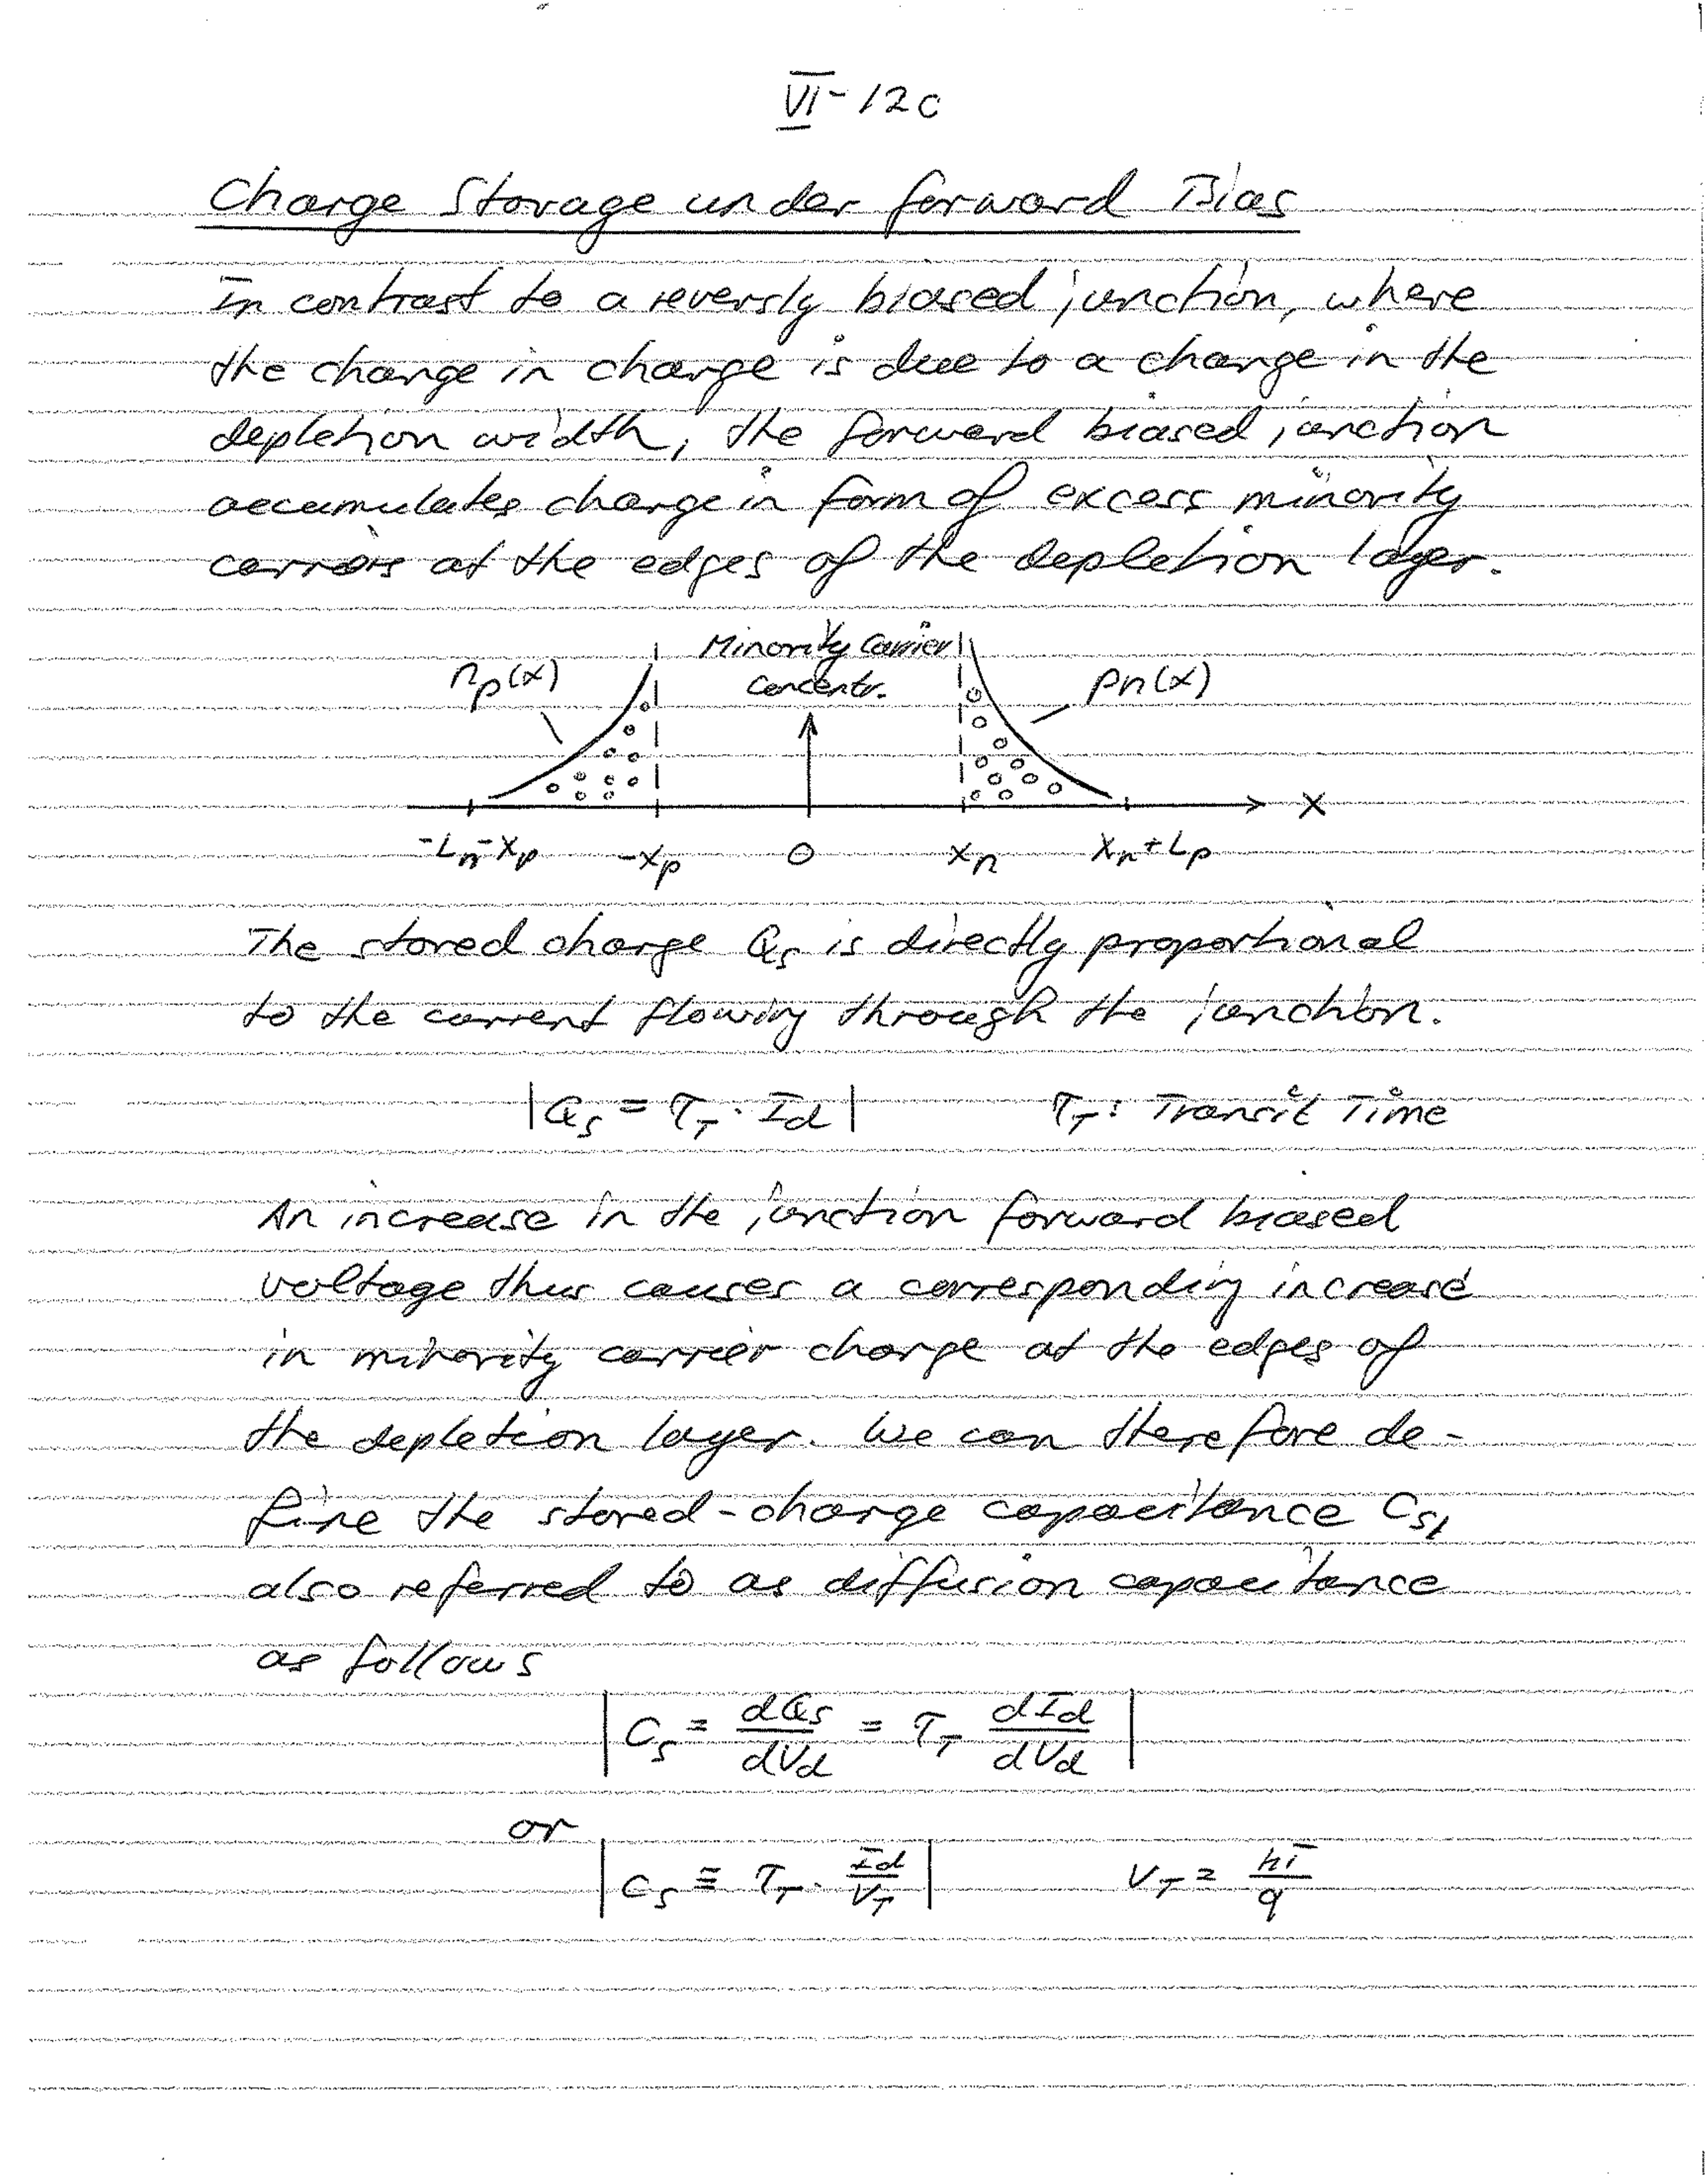 VI-12c
Charge Storage under forward Bias
In contrast to a reversly biased junction, where
the change in charge is due to a change in the
depletion width, the forward biased junction
accumulates charge in form of excess minority
carriers at the edges of the depletion layer.
Minority Carrier
Concentr.
np(x)
pn(x)
-Ln-xp -xp 0 xn xn+Lp x
The stored charge Qs is directly proportional
to the current flowing through the junction.
|Qs = τT · Id| τT: Transit Time
An increase in the junction forward biased
voltage thus causes a corresponding increase
in minority carrier charge at the edges of
the depletion layer. We can therefore de-
fine the stored-charge capacitance Cs,
also referred to as diffusion capacitance
as follows
|Cs = dQs/dVd = τT dId/dVd|
or
|Cs ≡ τT · Id/VT| VT = kT/q